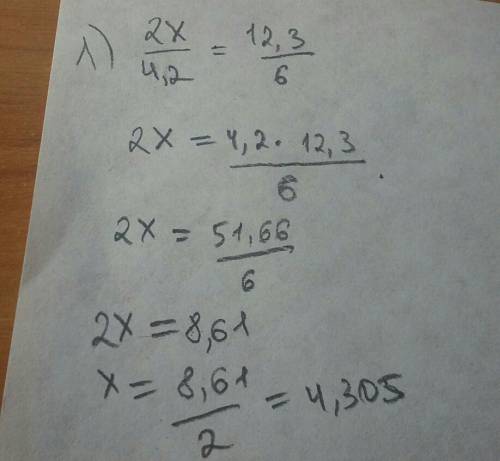 л) 2x/4,2 = 12,3/6
2x = 4,2 · 12,3/6
2x = 51,66/6
2x = 8,61
x = 8,61/2 = 4,305